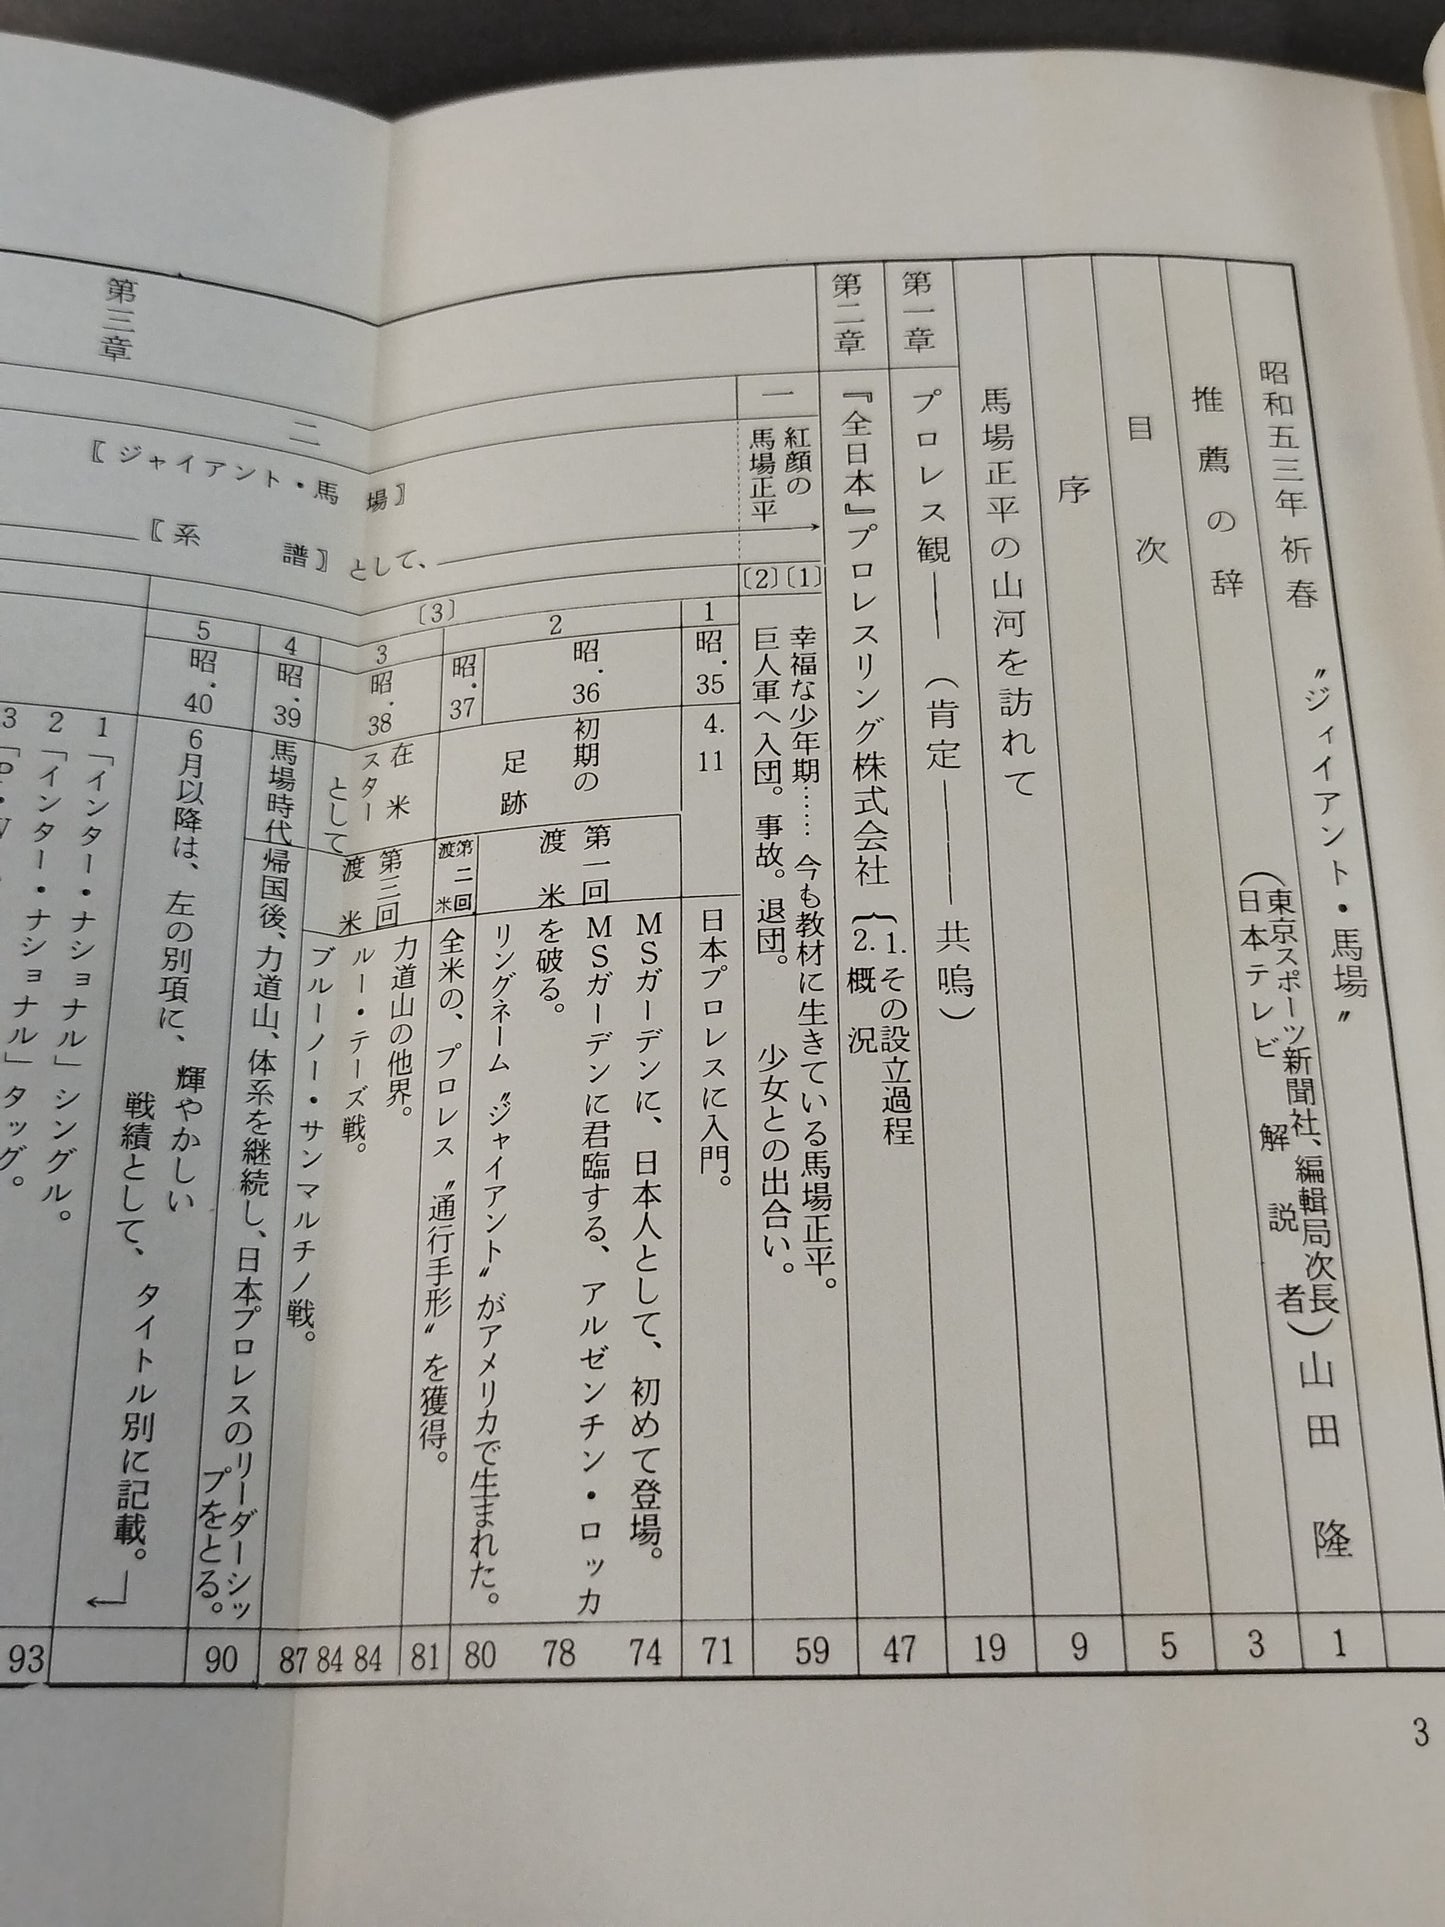 昭和五三年祈春　〝ジィイアント・馬場〟
1
推薦の辞
（東京スポーツ新聞社、編輯局次長
日本テレビ解説者）山田隆
3
目次
5
序
9
馬場正平の山河を訪れて
19
第一章
プロレス観――（肯定――――共鳴）
47
第二章
『全日本』プロレスリング株式会社
1.その設立過程
2.概況
59
第三章
一
紅顔の
馬場正平
〔1〕幸福な少年期……今も教材に生きている馬場正平。
〔2〕巨人軍へ入団。事故。退団。　少女との出合い。
二
〖ジャイアント・馬場〗
〖系譜〗として、
〔3〕
1
昭.35
4.11
日本プロレスに入門。
71
2
昭.36
初期の
足跡
第一回
渡米
MSガーデンに、日本人として、初めて登場。
74
MSガーデンに君臨する、アルゼンチン・ロッカ
を破る。
78
リングネーム〝ジャイアント〟がアメリカで生まれた。
80
昭.37
第二回
渡米
全米の、プロレス〝通行手形〟を獲得。
81
3
昭.38
在米
スター
として
第三回
渡米
力道山の他界。
84
ルー・テーズ戦。
84
ブルーノー・サンマルチノ戦。
87
4
昭.39
馬場時代
帰国後、力道山、体系を継続し、日本プロレスのリーダーシッ
プをとる。
90
5
昭.40
6月以降は、左の別項に、輝やかしい
戦績として、タイトル別に記載。
1「インター・ナショナル」シングル。
2「インター・ナショナル」タッグ。
93
3